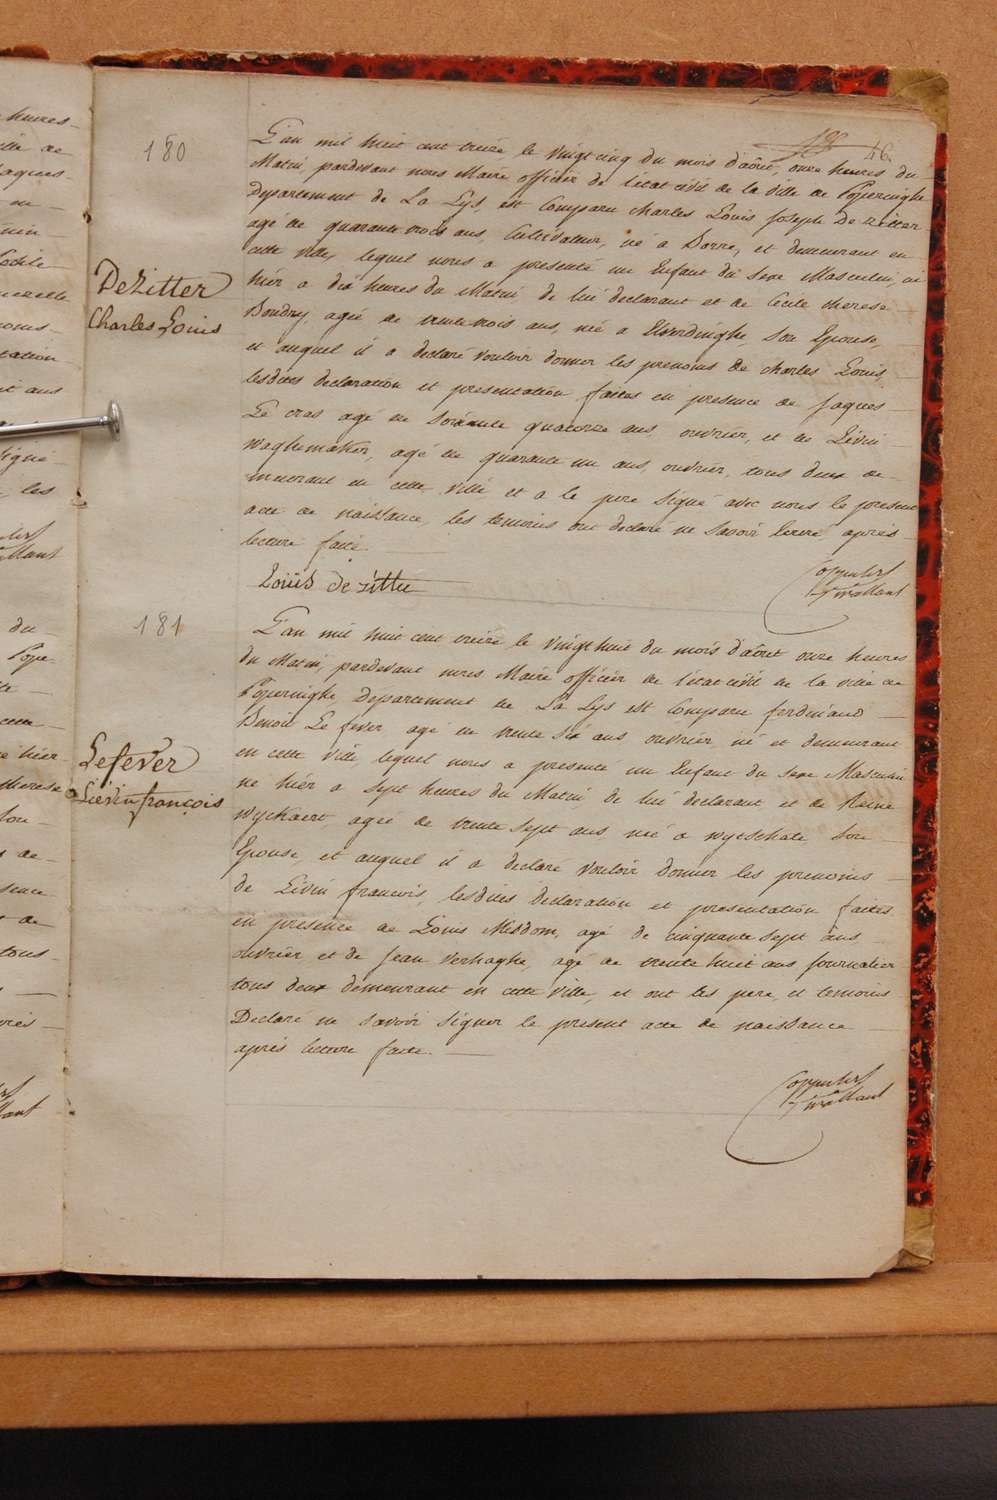 46.
180
DeZitter
Charles Louis
L'an mil huit cent treize le vingt cinq du mois d'août, onze heures du
Matin, pardevant nous Maire officier de l'état civil de la ville de Poperinghe
Departement de La Lys, est Comparu Charles Louis Joseph De zitter
agé de quarante trois ans, Cultivateur, né a Dorre, et demeurant en
cette ville, lequel nous a presenté un Enfant du Sexe Masculin, né
hiér a dix heures du Matin de lui declarant et de Cecile therese
Boudry, agée de trente trois ans, née a Elverdinghe, Son Epouse,
et auquel il a declaré vouloir donner les prenoms de Charles Louis,
lesdites declaration et presentation faites en presence de Jaques
Le cras agé de soixante quatorze ans, ouvrier, et de Livin
Waghemaker, agé de quarante un ans, ouvrier, tous deux de-
meurant en cette ville et a le pere Signé avec nous le present
acte de naissance, les temoins ont declaré ne Savoir lecrire après
lecture faite.
Louis de zitter
181
Lefever
Liévin françois
L'an mil huit cent treize le vingt huit du mois d'août onze heures
du Matin, pardevant nous Maire officier de l'état civil de la ville de
Poperinghe, Departement de La Lys est Comparu ferdinand
Benoit Le fever agé de trente six ans ouvrier, né et demeurant
en cette ville, lequel nous a presenté un Enfant du Sexe Masculin
né hiér a sept heures du Matin de lui declarant et de Reine
Wyckaert, agée de trente Sept ans née a Wytschate Son
Epouse, et auquel il a declaré vouloir donner les prenoms
de Livin francois, lesdites declaration et presentation faites
en presence de Louis Misdom, agé de cinquante sept ans
ouvrier et de Jean Verhaghe, agé de trente huit ans Journalier
tous deux demeurant en cette ville, et ont les pere, et temoins
Declaré ne savoir Signer le present acte de naissance
après lecture faite.